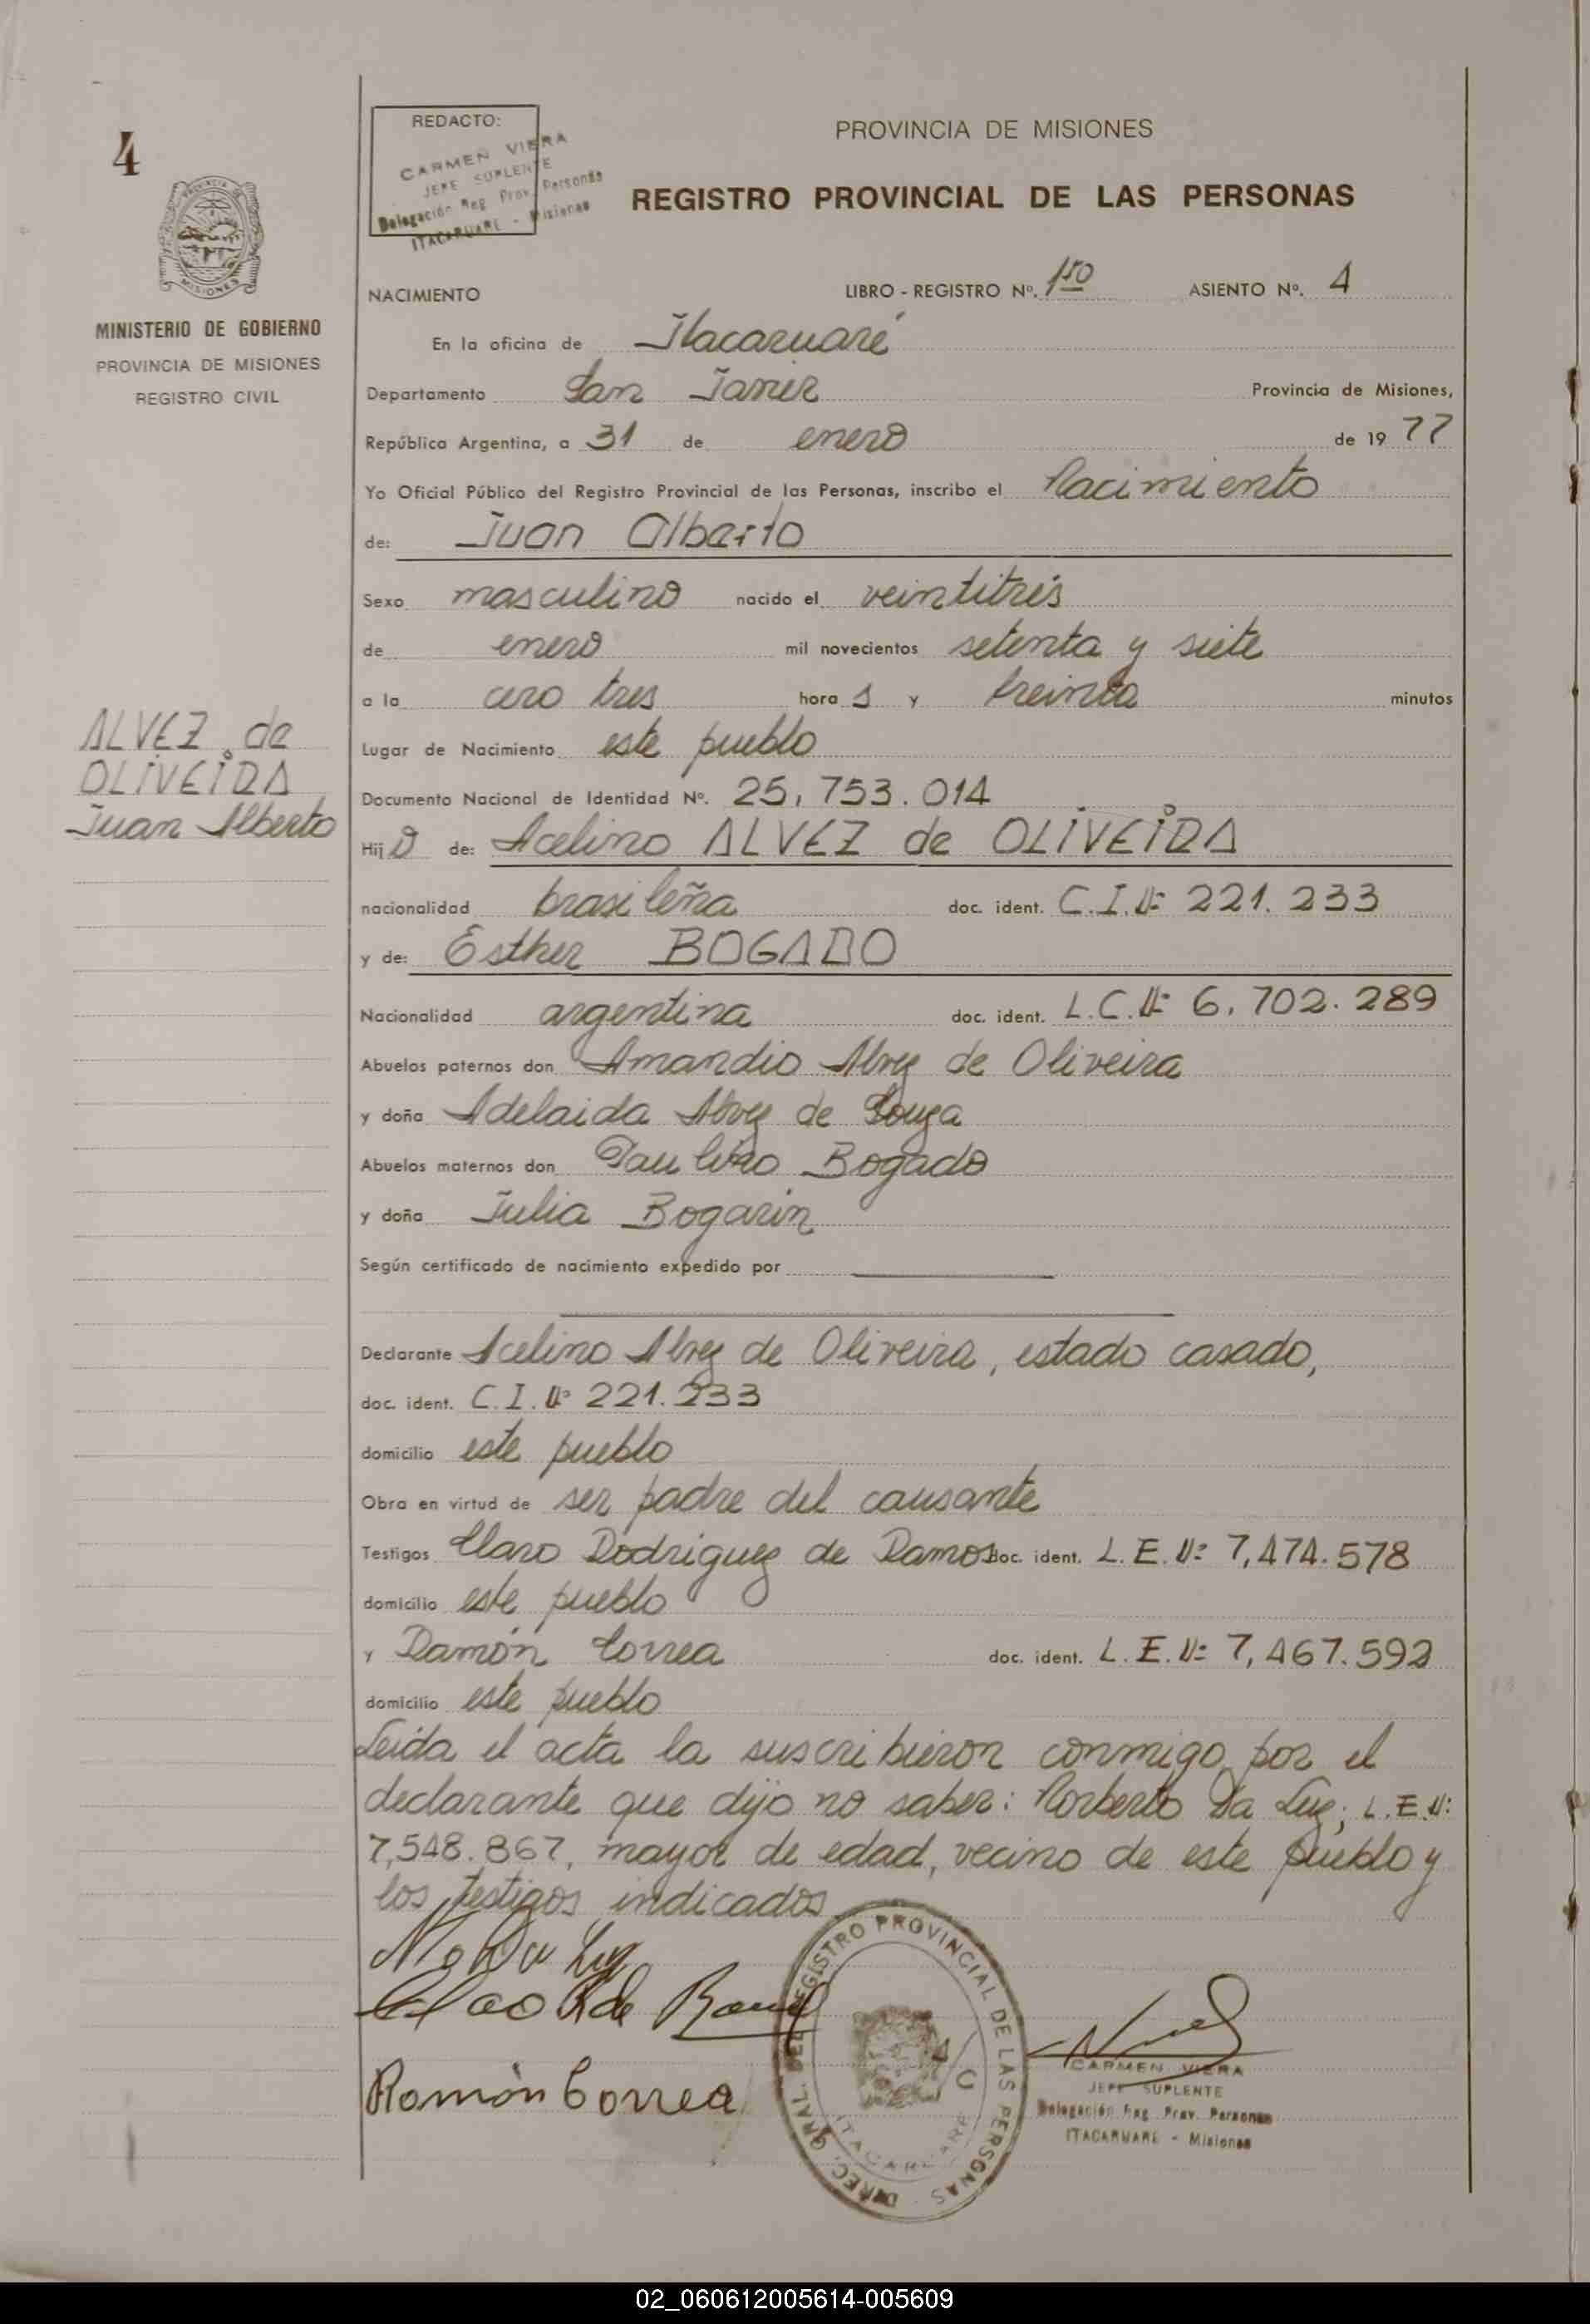 4
REDACTO:
CARMEN VIERA
JEFE SUPLENTE
Delegación Reg. Prov. Personas
ITACARUARE - Misiones
PROVINCIA DE MISIONES
REGISTRO PROVINCIAL DE LAS PERSONAS
MINISTERIO DE GOBIERNO
PROVINCIA DE MISIONES
REGISTRO CIVIL
NACIMIENTO LIBRO - REGISTRO Nº. 1º ASIENTO Nº. 4
En la oficina de Itacaruaré
Departamento San Javier Provincia de Misiones,
República Argentina, a 31 de enero de 19 77
Yo Oficial Público del Registro Provincial de las Personas, inscribo el Nacimiento
de: Juan Alberto
Sexo masculino nacido el veintitrés
de enero mil novecientos setenta y siete
a la cero tres hora s y treinta minutos
Lugar de Nacimiento este pueblo
ALVEZ de
OLIVEIRA
Juan Alberto
Documento Nacional de Identidad Nº. 25,753.014
Hij o de: Acelino ALVEZ de OLIVEIRA
nacionalidad brasileña doc. ident. C.I.Nº 221.233
y de: Esther BOGADO
Nacionalidad argentina doc. ident. L.C.Nº 6,702.289
Abuelos paternos don Amandio Alvez de Oliveira
y doña Adelaida Alvez de Souza
Abuelos maternos don Paulino Bogado
y doña Julia Bogarin
Según certificado de nacimiento expedido por
Declarante Acelino Alvez de Oliveira, estado casado,
doc. ident. C.I.Nº 221.233
domicilio este pueblo
Obra en virtud de ser padre del causante
Testigos Claro Rodriguez de Ramos doc. ident. L.E.Nº 7,474.578
domicilio este pueblo
y Ramón Correa doc. ident. L.E.Nº 7,467.592
domicilio este pueblo
Leida el acta la suscribieron conmigo, por el
declarante que dijo no saber: Norberto Da Luz, L.E.Nº
7,548.867, mayor de edad, vecino de este pueblo y
los testigos indicados
Ramón Correa
DIREC. GRAL. DEL REGISTRO PROVINCIAL DE LAS PERSONAS
ITACARUARE
CARMEN VIERA
JEFE SUPLENTE
Delegación Reg. Prov. Personas
ITACARUARE - Misiones
02_060612005614-005609